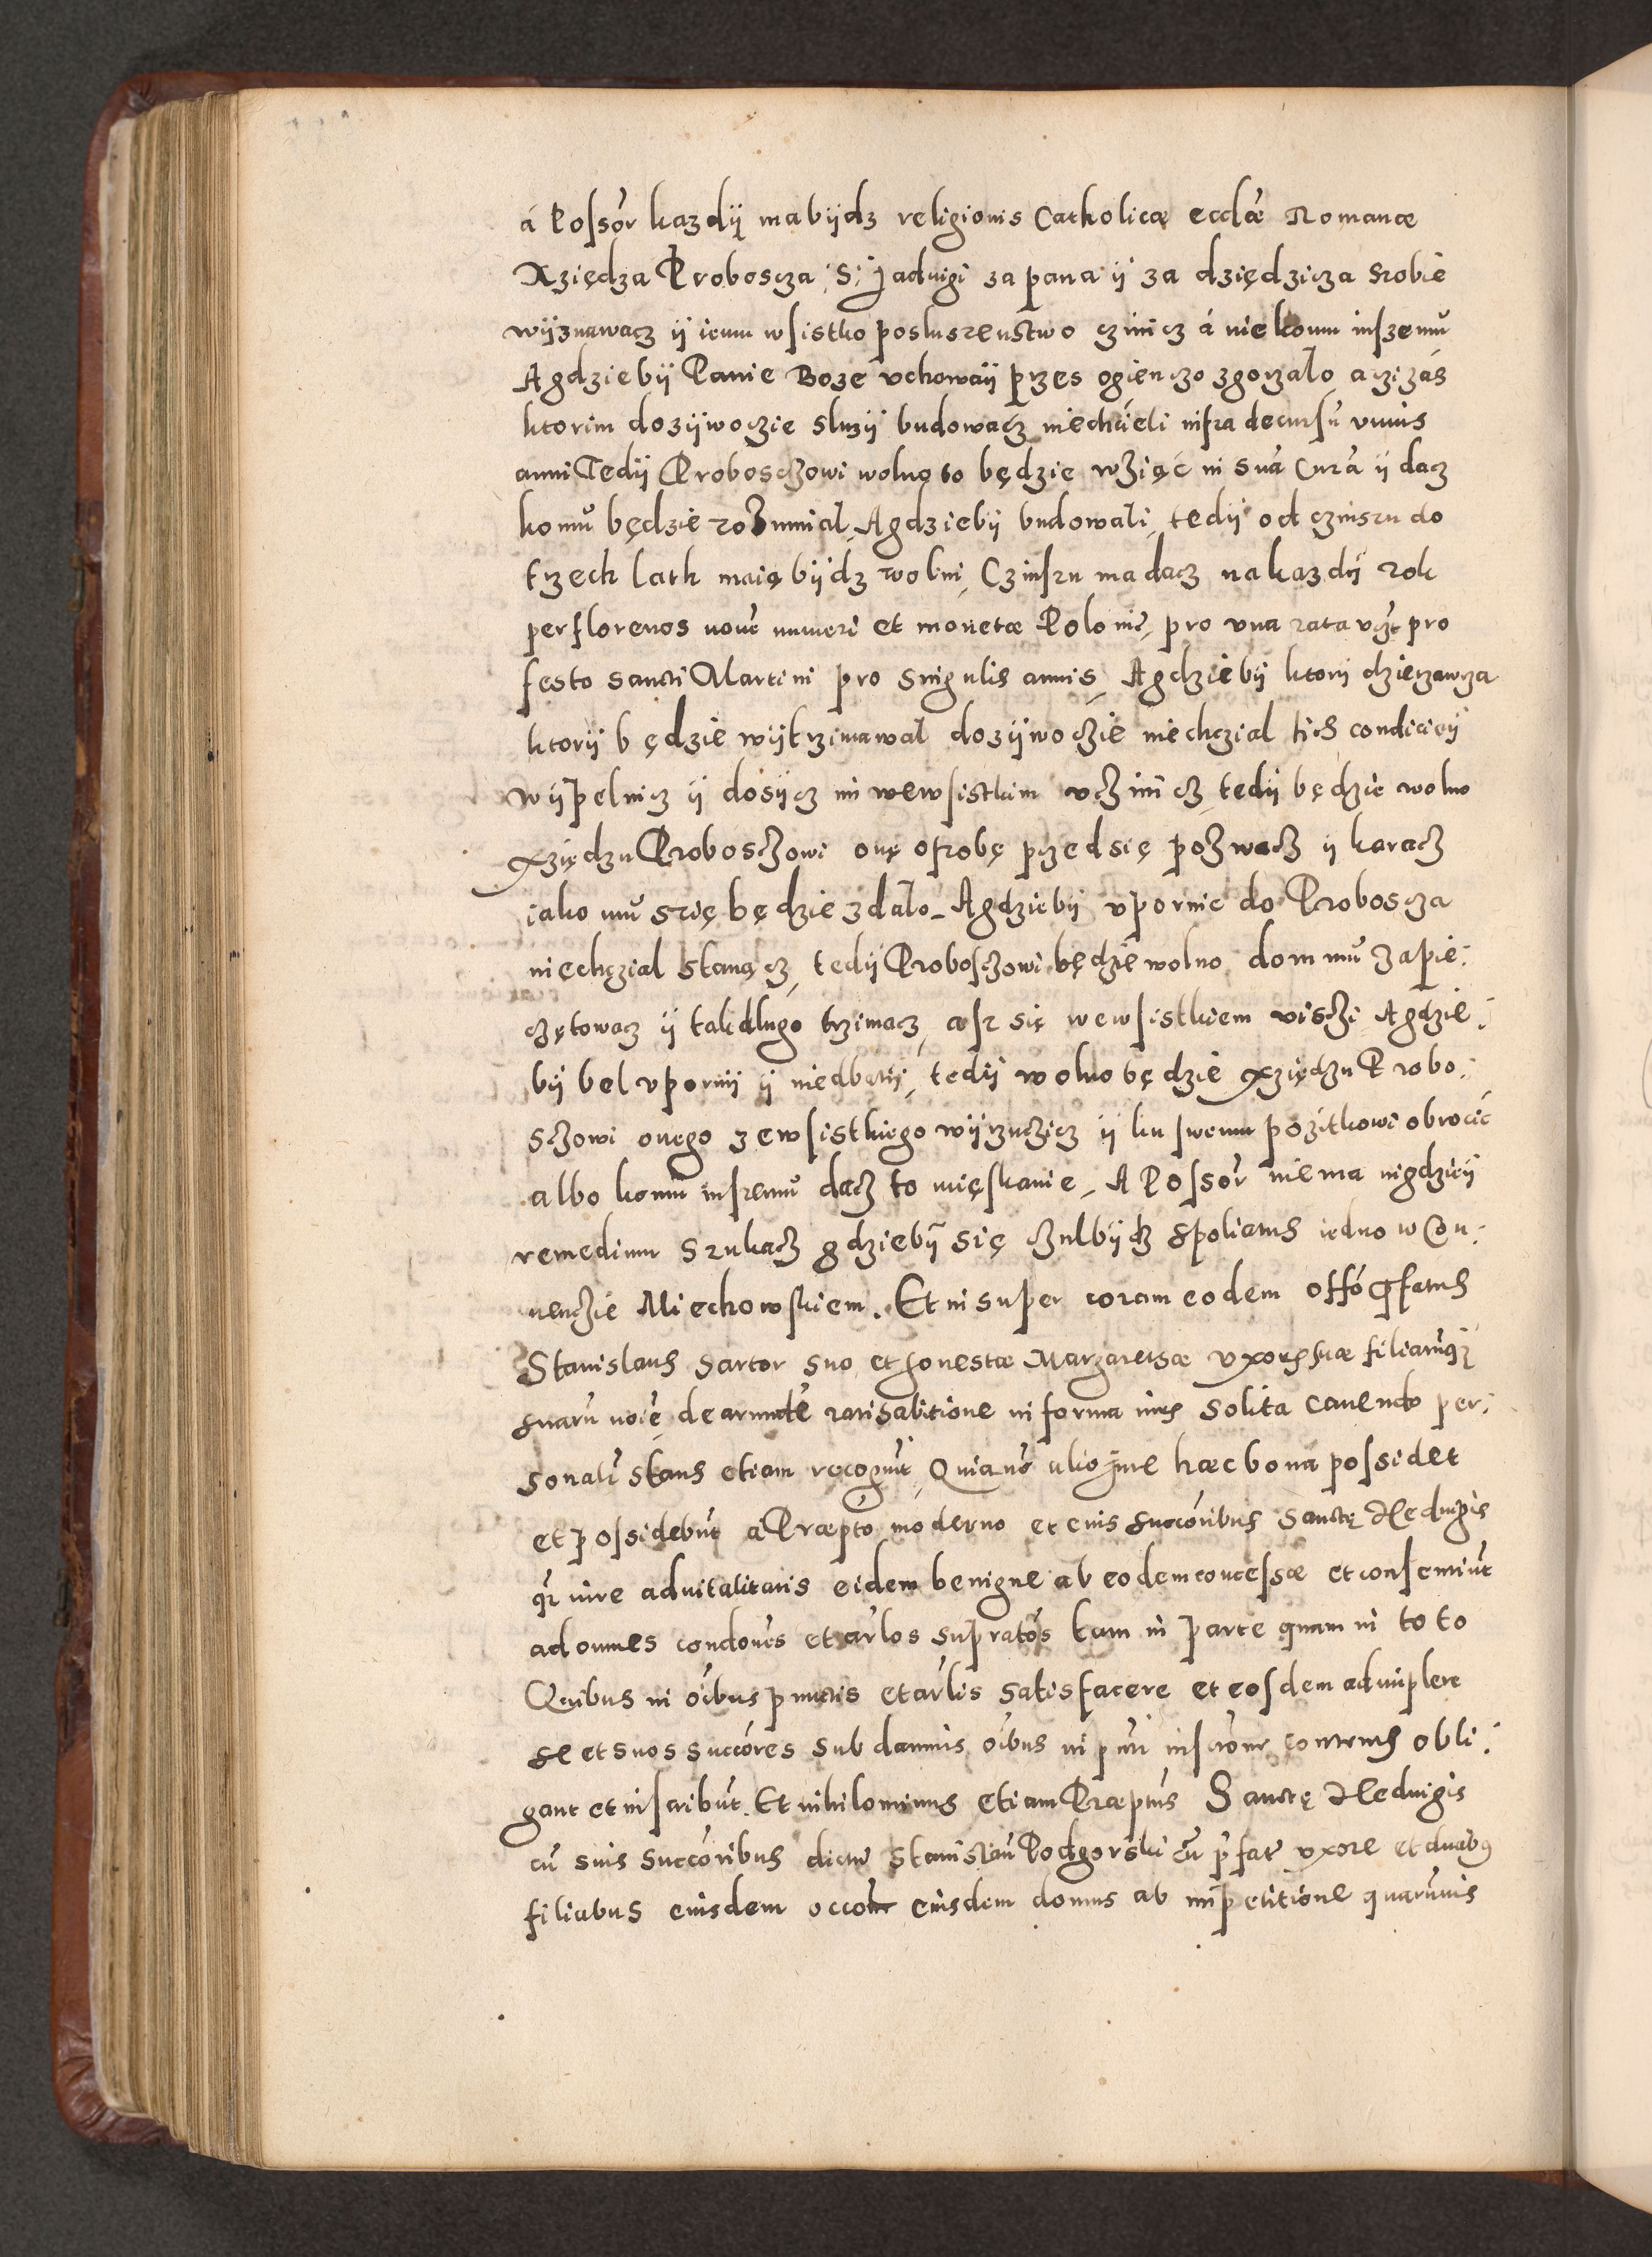 á Possór kazdÿ ma bÿdz religionis Catholicæ ecclæ Romanæ
Xziędza Proboscza S: Jaduigi za pana ÿ za dziędzicza szobie
wÿznawacz ÿ iemu wsistko posluszenstwo czinicz á niekomu inszemu
A gdziebÿ Panie Boze uchowaÿ przes ogien czo zgorzalo a czi zás
ktorim dozÿwoczie sluzÿ budowacz niechcieli infra decursū unius
anni Tedÿ Probosczowi wolno to będzie wziąć in suā curā ÿ dacz
komu będzie rozumial, A gdziebÿ budowali, tedÿ od czinszu do
trzech lath maią bÿdz wolni, Czinszu ma dacz na kazdÿ rok
per florenos nouē numeri et monetæ Polonic, pro una rata vz pro
festo sancti Martini pro singulis annis, A gdziebÿ ktori dzierzawcza
ktorÿ będzie wÿtrzimawal dozÿwoczie niechczial tich condicieÿ
wÿpelnicz ÿ dosÿcz im wewsistkim uczinicz, tedÿ będzie wolno
Xziędzu Probosczowi onę oszobę przed się pozwacz ÿ karacz
iako mu szię będzie zdalo - A gdziebÿ upornie do Proboscza
niechczial stanącz, tedÿ Probosczowi będzie wolno dom mu zapie:
czętowacz ÿ tak dlugo trzimacz, asz się wewsistkiem uisczi A gdzie:
bÿ bel upornÿ ÿ niedbałÿ, tedÿ wolno będzie Xziędzu Probo:
sczowi onego zewsistkiego wÿrzuczicz ÿ ku swemu pozitkowi obrocić
albo komu inszemu dacz to mięskanie, A Possór niema nigdzieÿ
remedium szukacz gdziebÿ się czul bÿdz spoliatus iedno w Con:
uenczie Miechowskiem. Et in super coram eodem offó pfatus
Stanislaus Sartor suo et honestæ Margarethæ uxoris suæ filiarūqȝ
suarū noīe, de earundē ratihabitione in forma iuris solita cauendo per:
sonalr stans etiam recognuit, Quia nō alio iure hæc bona possidet
et possidebūt a Præpto moderno et eius succōribus Sanctę Heduigis
qr iure aduitalitatis eidem benigne ab eodem concessæ et consentiūt
ad omnes condoēs et arlos supratos tam in parte quam in toto
Quibus in oībus punctis et arlis satisfacere et eosdem adimplere
se et suos succōres sub damnis oībus in pūti inscrōne contentis obli:
gant et inscribūt. Et nihilominus etiam Præptus Sanctę Heduigis
cū suis succōribus dictū Stanislaū Podgorski cū p̄fatā uxore et duabȝ
filiabus eiusdem occōe eiusdem domus ab impetitione quarumuis